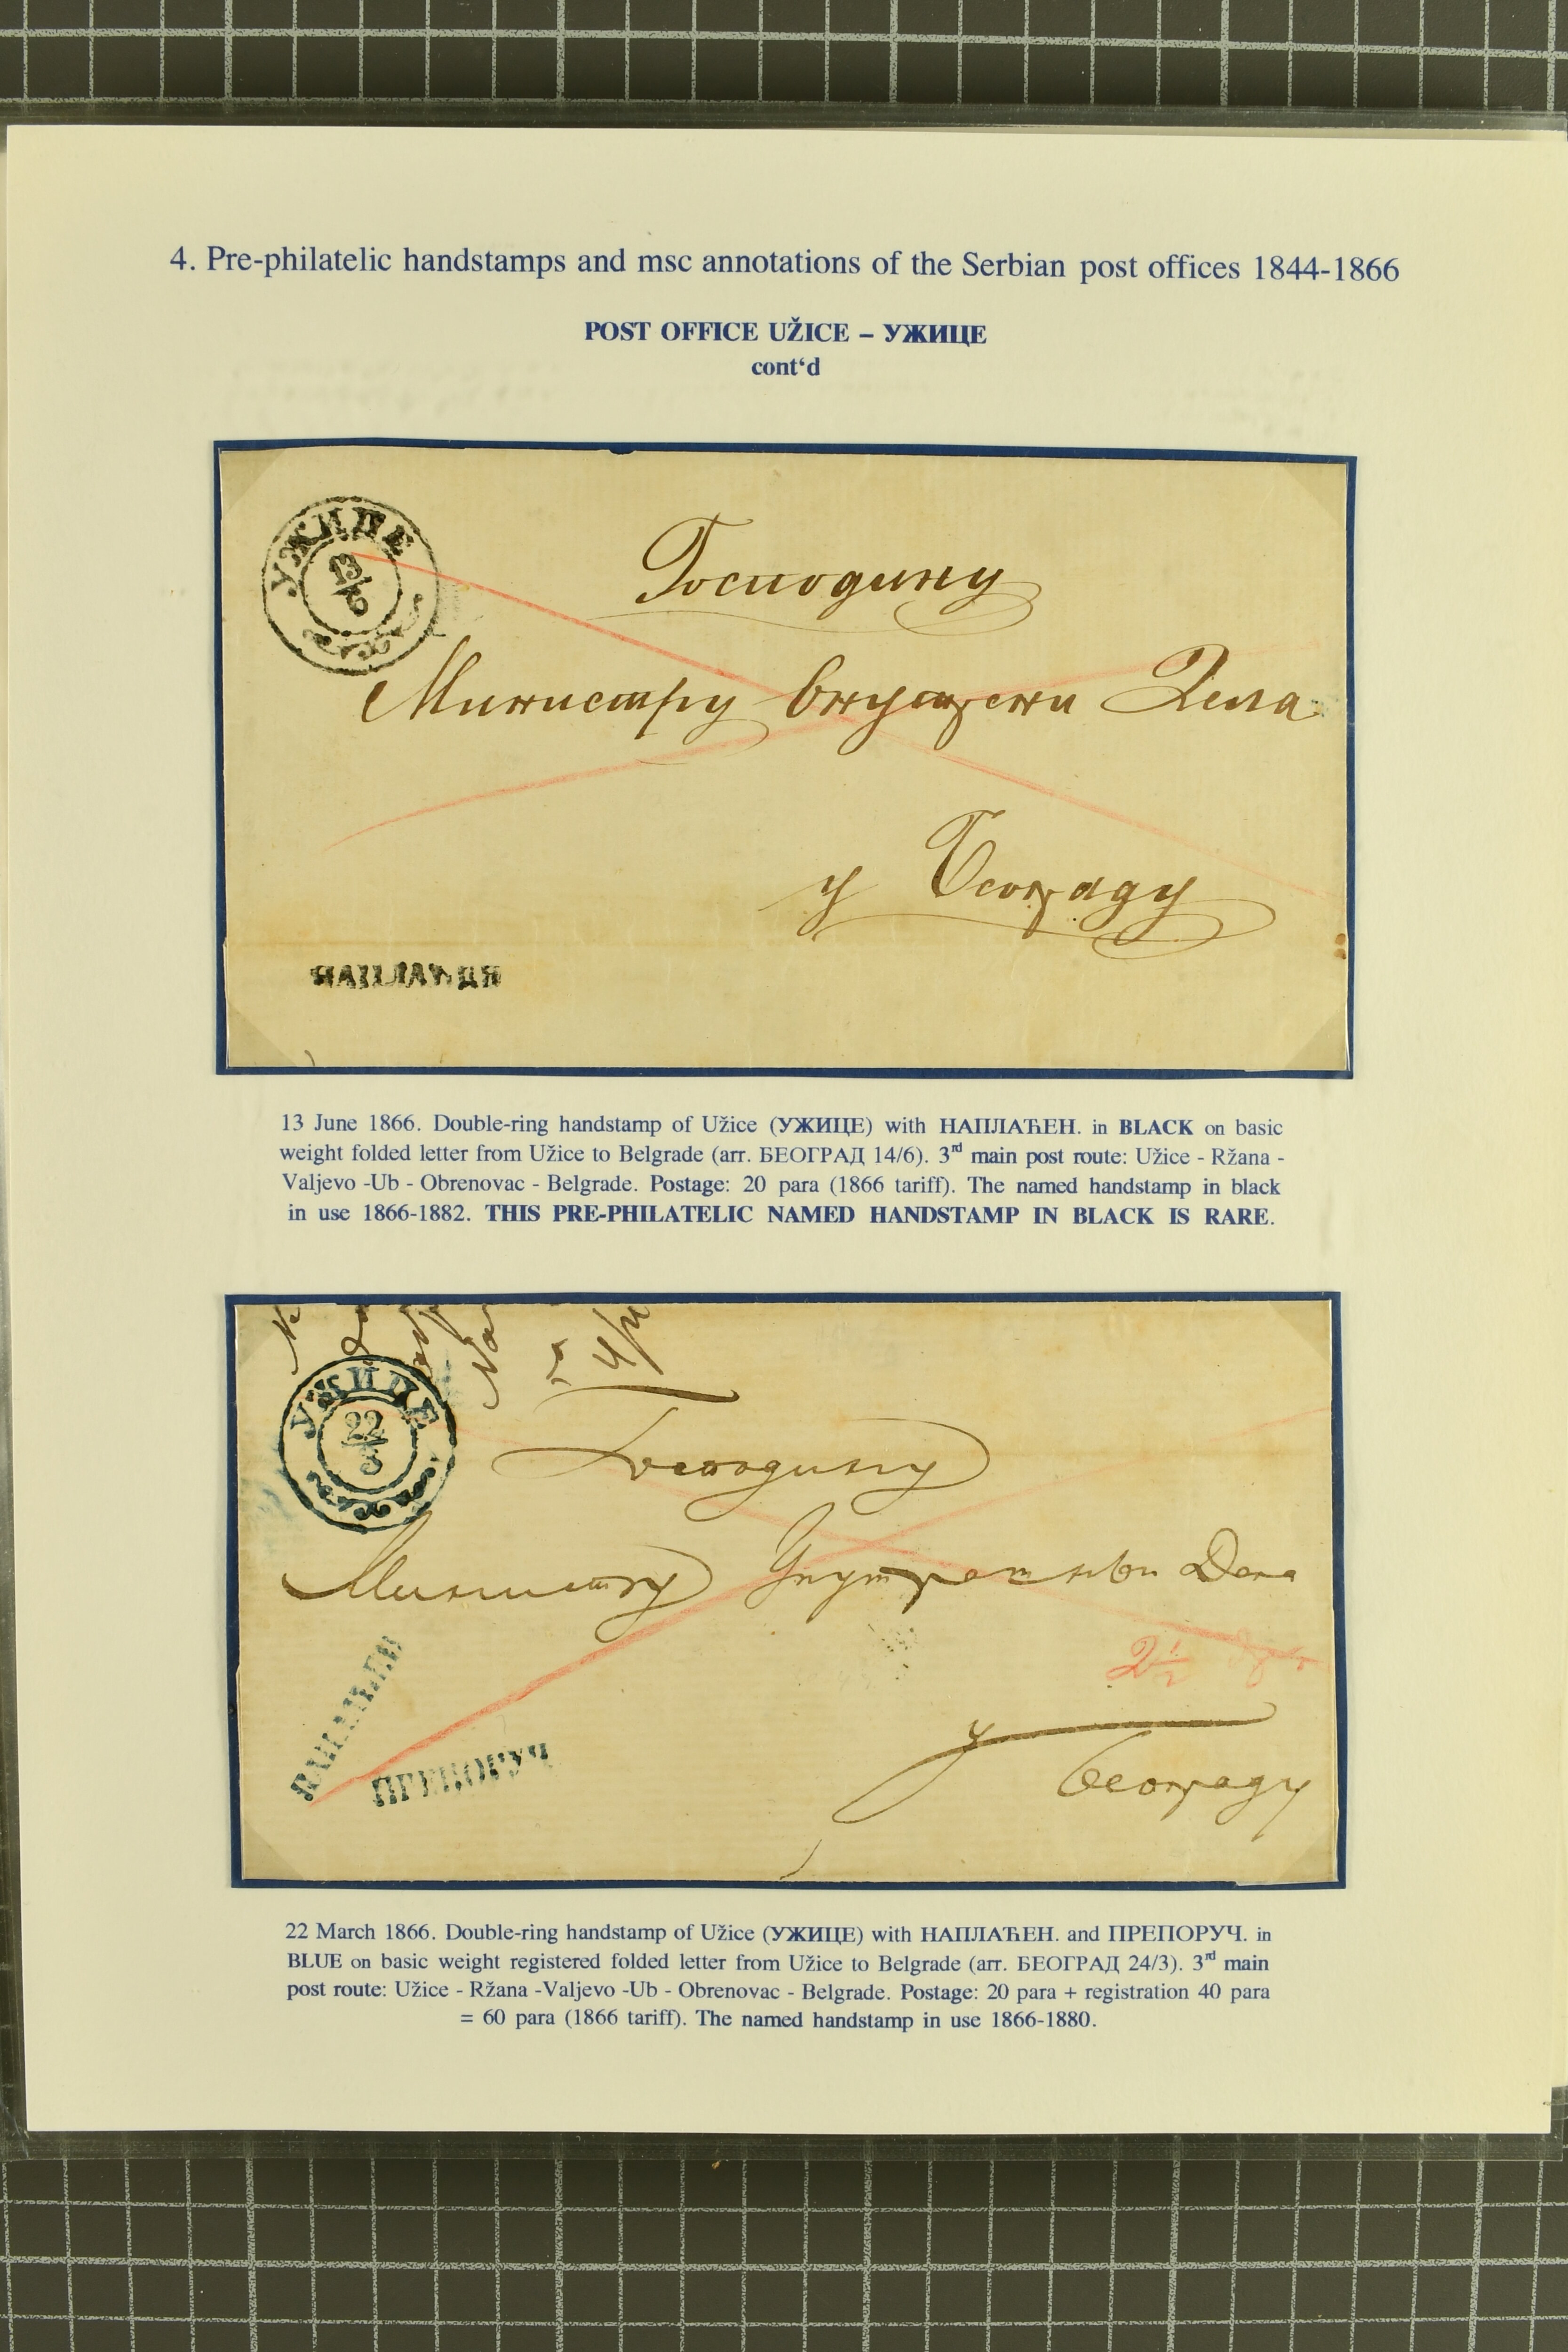 4. Pre-philatelic handstamps and msc annotations of the Serbian post offices 1844-1866
POST OFFICE UŽICE – УЖИЦЕ
cont‘d
УЖИЦЕ
13
6
Господину
Министру Внутрени Дела
у Београду
НАПЛАЋЕН
13 June 1866. Double-ring handstamp of Užice (УЖИЦЕ) with НАПЛАЋЕН. in BLACK on basic
weight folded letter from Užice to Belgrade (arr. БЕОГРАД 14/6). 3rd main post route: Užice - Ržana -
Valjevo -Ub - Obrenovac - Belgrade. Postage: 20 para (1866 tariff). The named handstamp in black
in use 1866-1882. THIS PRE-PHILATELIC NAMED HANDSTAMP IN BLACK IS RARE.
УЖИЦЕ
22
3
Господину
Министру Унутрашньи Дела
2½
у
Београду
НАПЛАЋЕН
ПРЕПОРУЧ
22 March 1866. Double-ring handstamp of Užice (УЖИЦЕ) with НАПЛАЋЕН. and ПРЕПОРУЧ. in
BLUE on basic weight registered folded letter from Užice to Belgrade (arr. БЕОГРАД 24/3). 3rd main
post route: Užice - Ržana -Valjevo -Ub - Obrenovac - Belgrade. Postage: 20 para + registration 40 para
= 60 para (1866 tariff). The named handstamp in use 1866-1880.